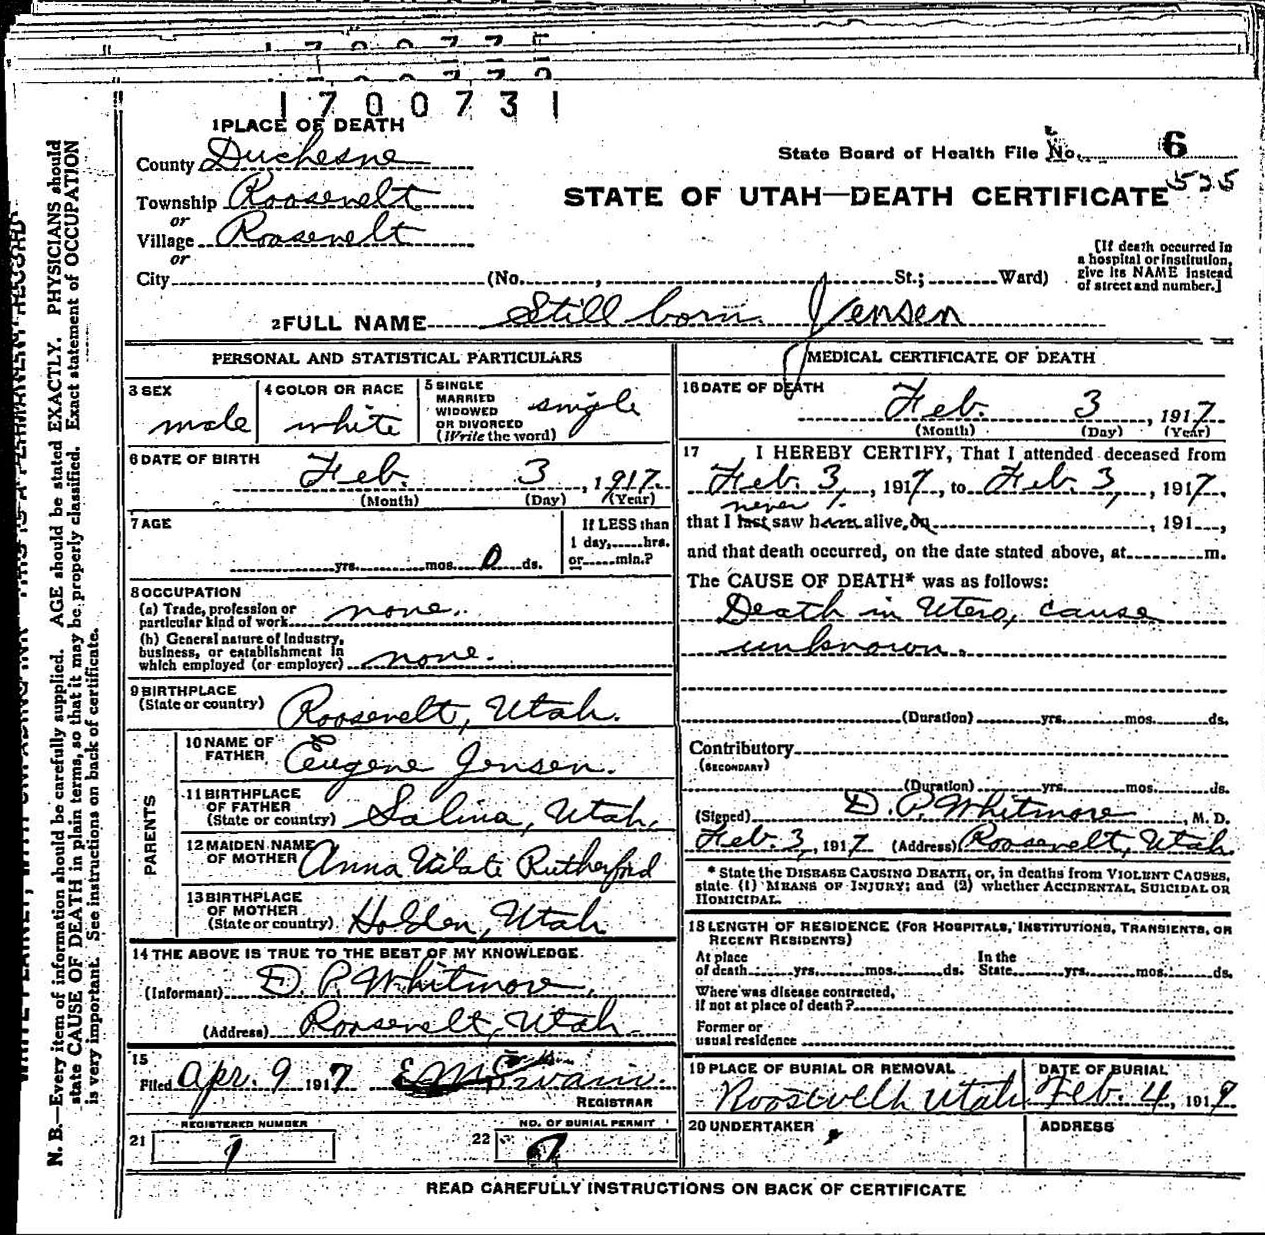 1700731
1 PLACE OF DEATH
County Duchesne
State Board of Health File No. 6
Township Roosevelt
STATE OF UTAH—DEATH CERTIFICATE
or
Village Roosevelt
or
City (No. , St.; Ward)
[If death occurred in
a hospital or institution,
give its NAME instead
of street and number.]
2 FULL NAME Still born Jensen
PERSONAL AND STATISTICAL PARTICULARS
3 SEX
male
4 COLOR OR RACE
white
5 SINGLE
MARRIED
WIDOWED
OR DIVORCED
(Write the word)
single
6 DATE OF BIRTH
Feb. 3, 1917
(Month) (Day) (Year)
7 AGE
yrs. mos. 0 ds.
If LESS than
1 day, hrs.
or min.?
8 OCCUPATION
(a) Trade, profession or
particular kind of work none.
(b) General nature of Industry,
business, or establishment in
which employed (or employer) none.
9 BIRTHPLACE
(State or country) Roosevelt, Utah.
PARENTS
10 NAME OF
FATHER Eugene Jensen.
11 BIRTHPLACE
OF FATHER
(State or country) Salina, Utah,
12 MAIDEN NAME
OF MOTHER Anna Vilate Rutherford
13 BIRTHPLACE
OF MOTHER
(State or country) Holden, Utah
14 THE ABOVE IS TRUE TO THE BEST OF MY KNOWLEDGE.
(Informant) D. P. Whitmore,
(Address) Roosevelt, Utah
15
Filed Apr. 9 1917
REGISTRAR
REGISTERED NUMBER
21
NO. OF BURIAL PERMIT
22
MEDICAL CERTIFICATE OF DEATH
16 DATE OF DEATH
Feb. 3, 1917
(Month) (Day) (Year)
17 I HEREBY CERTIFY, That I attended deceased from
Feb. 3, 1917, to Feb. 3, 1917,
never
that I last saw him alive, on , 191 ,
and that death occurred, on the date stated above, at m.
The CAUSE OF DEATH* was as follows:
Death in Utero, cause
unknown.
(Duration) yrs. mos. ds.
Contributory
(SECONDARY)
(Duration) yrs. mos. ds.
(Signed) D. P. Whitmore, M. D.
Feb. 3, 1917 (Address) Roosevelt, Utah
* State the DISEASE CAUSING DEATH, or, in deaths from VIOLENT CAUSES,
state (1) MEANS OF INJURY; and (2) whether ACCIDENTAL, SUICIDAL OR
HOMICIDAL.
18 LENGTH OF RESIDENCE (FOR HOSPITALS, INSTITUTIONS, TRANSIENTS, OR
RECENT RESIDENTS)
At place
of death yrs. mos. ds.
In the
State yrs. mos. ds.
Where was disease contracted,
if not at place of death?
Former or
usual residence
19 PLACE OF BURIAL OR REMOVAL
Roosevelt Utah
DATE OF BURIAL
Feb. 4, 1917.
20 UNDERTAKER
ADDRESS
READ CAREFULLY INSTRUCTIONS ON BACK OF CERTIFICATE
N. B.—Every item of information should be carefully supplied. AGE should be stated EXACTLY. PHYSICIANS should
state CAUSE OF DEATH in plain terms, so that it may be properly classified. Exact statement of OCCUPATION
is very important. See instructions on back of certificate.